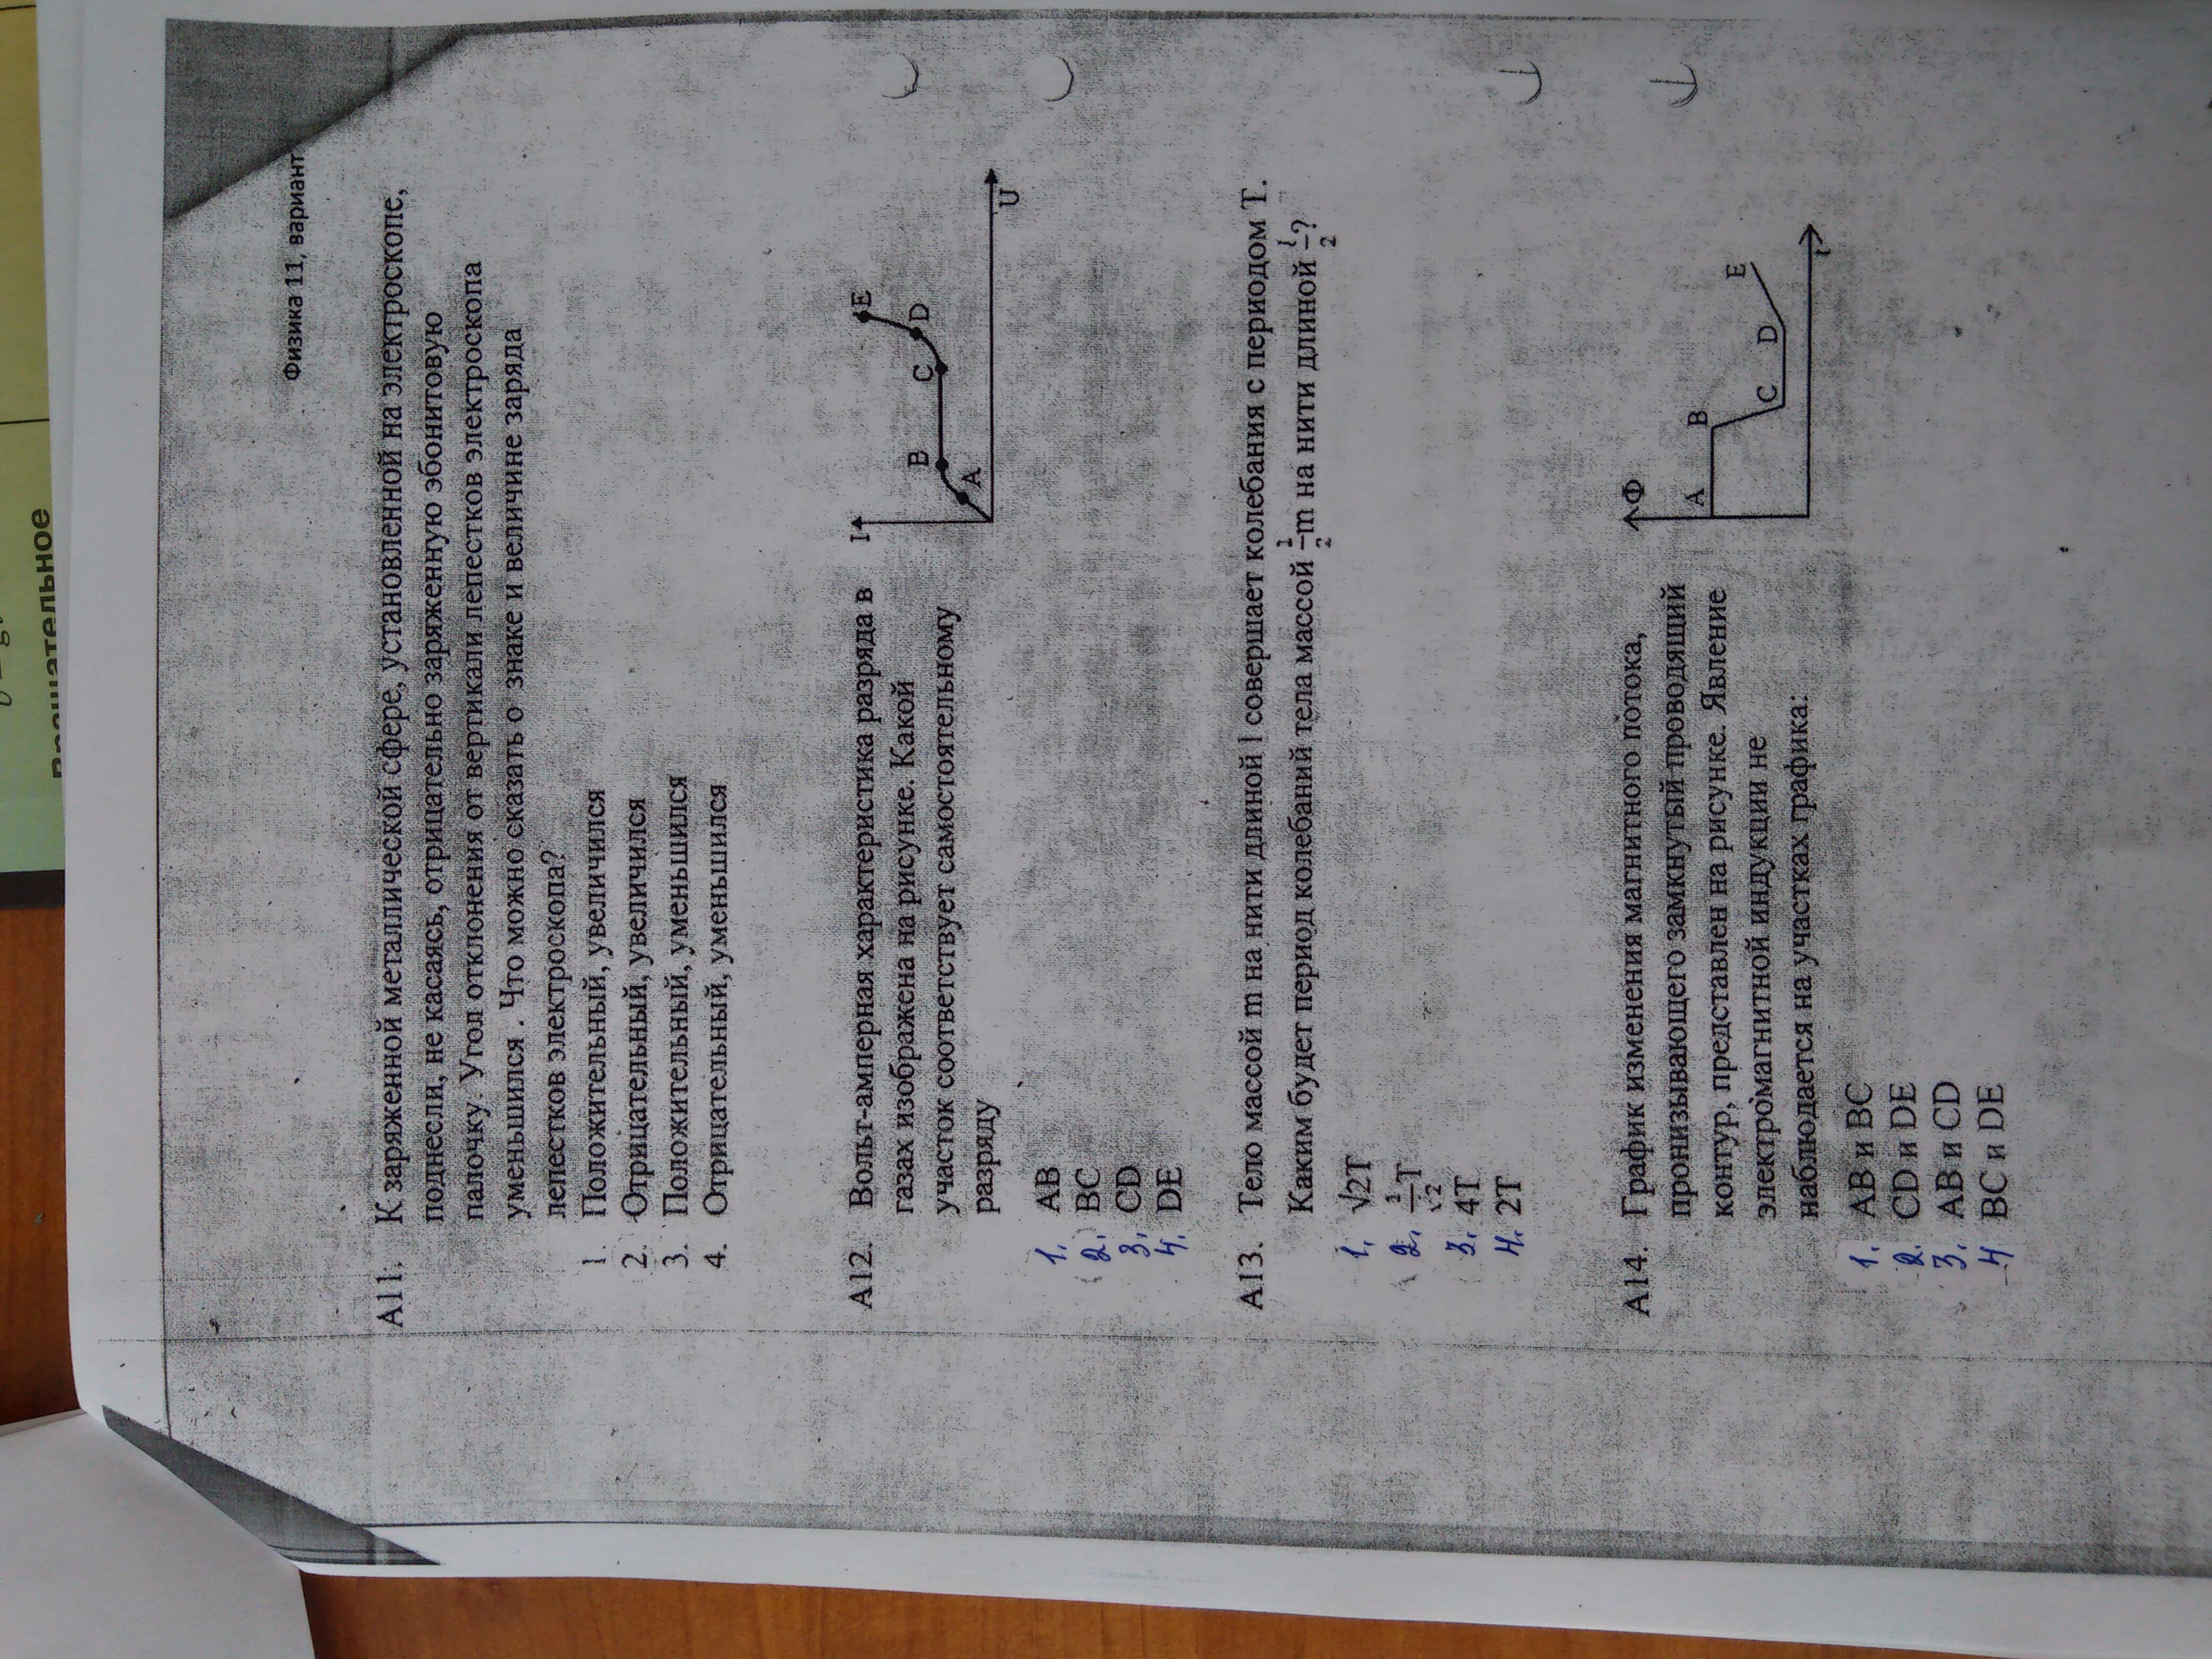 Вращательное
Физика 11, вариант
А11. К заряженной металлической сфере, установленной на электроскопе,
поднесли, не касаясь, отрицательно заряженную эбонитовую
палочку. Угол отклонения от вертикали лепестков электроскопа
уменьшился . Что можно сказать о знаке и величине заряда
лепестков электроскопа?
1. Положительный, увеличился
2. Отрицательный, увеличился
3. Положительный, уменьшился
4. Отрицательный, уменьшился
А12. Вольт-амперная характеристика разряда в
газах изображена на рисунке. Какой
участок соответствует самостоятельному
разряду
I
A
B
C
D
E
U
1. AB
2. BC
3. CD
4. DE
А13. Тело массой m на нити длиной l совершает колебания с периодом Т.
Каким будет период колебаний тела массой 1/2 m на нити длиной l/2?
1. √2T
2. 1/√2 T
3. 4T
4. 2T
А14. График изменения магнитного потока,
пронизывающего замкнутый проводящий
контур, представлен на рисунке. Явление
электромагнитной индукции не
наблюдается на участках графика:
Ф
A
B
C
D
E
t
1. AB и BC
2. CD и DE
3. AB и CD
4 BC и DE